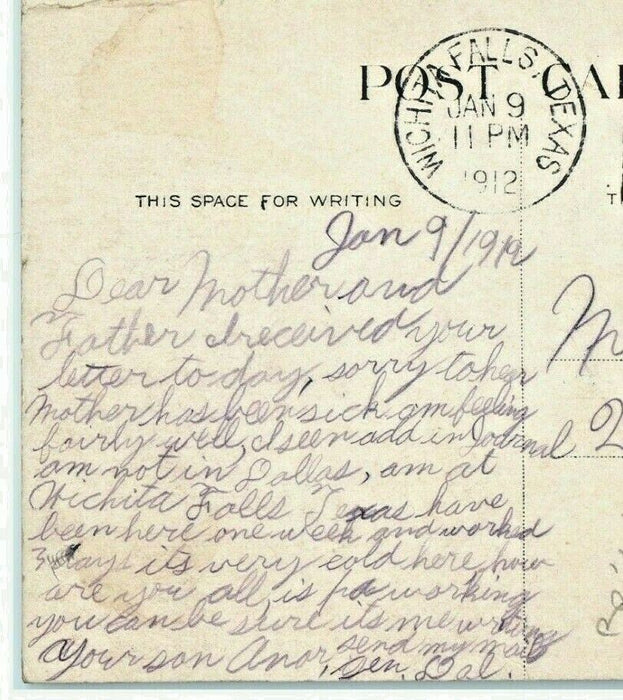 POST CA
WICHITA FALLS, TEXAS
JAN 9
11 PM
1912
THIS SPACE FOR WRITING
T
Jan 9/1912
Dear Mother and
Father I received your
letter to day, sorry to hear
Mother has been sick am feeling
fairly well, I seen add in Journal
am not in Dallas, am at
Wichita Falls Texas have
been here one week and worked
3 days its very cold here how
are you all is pa working
you can be sure its me writing
Your son Anor, send my mail
Gen. Dal.
M
2